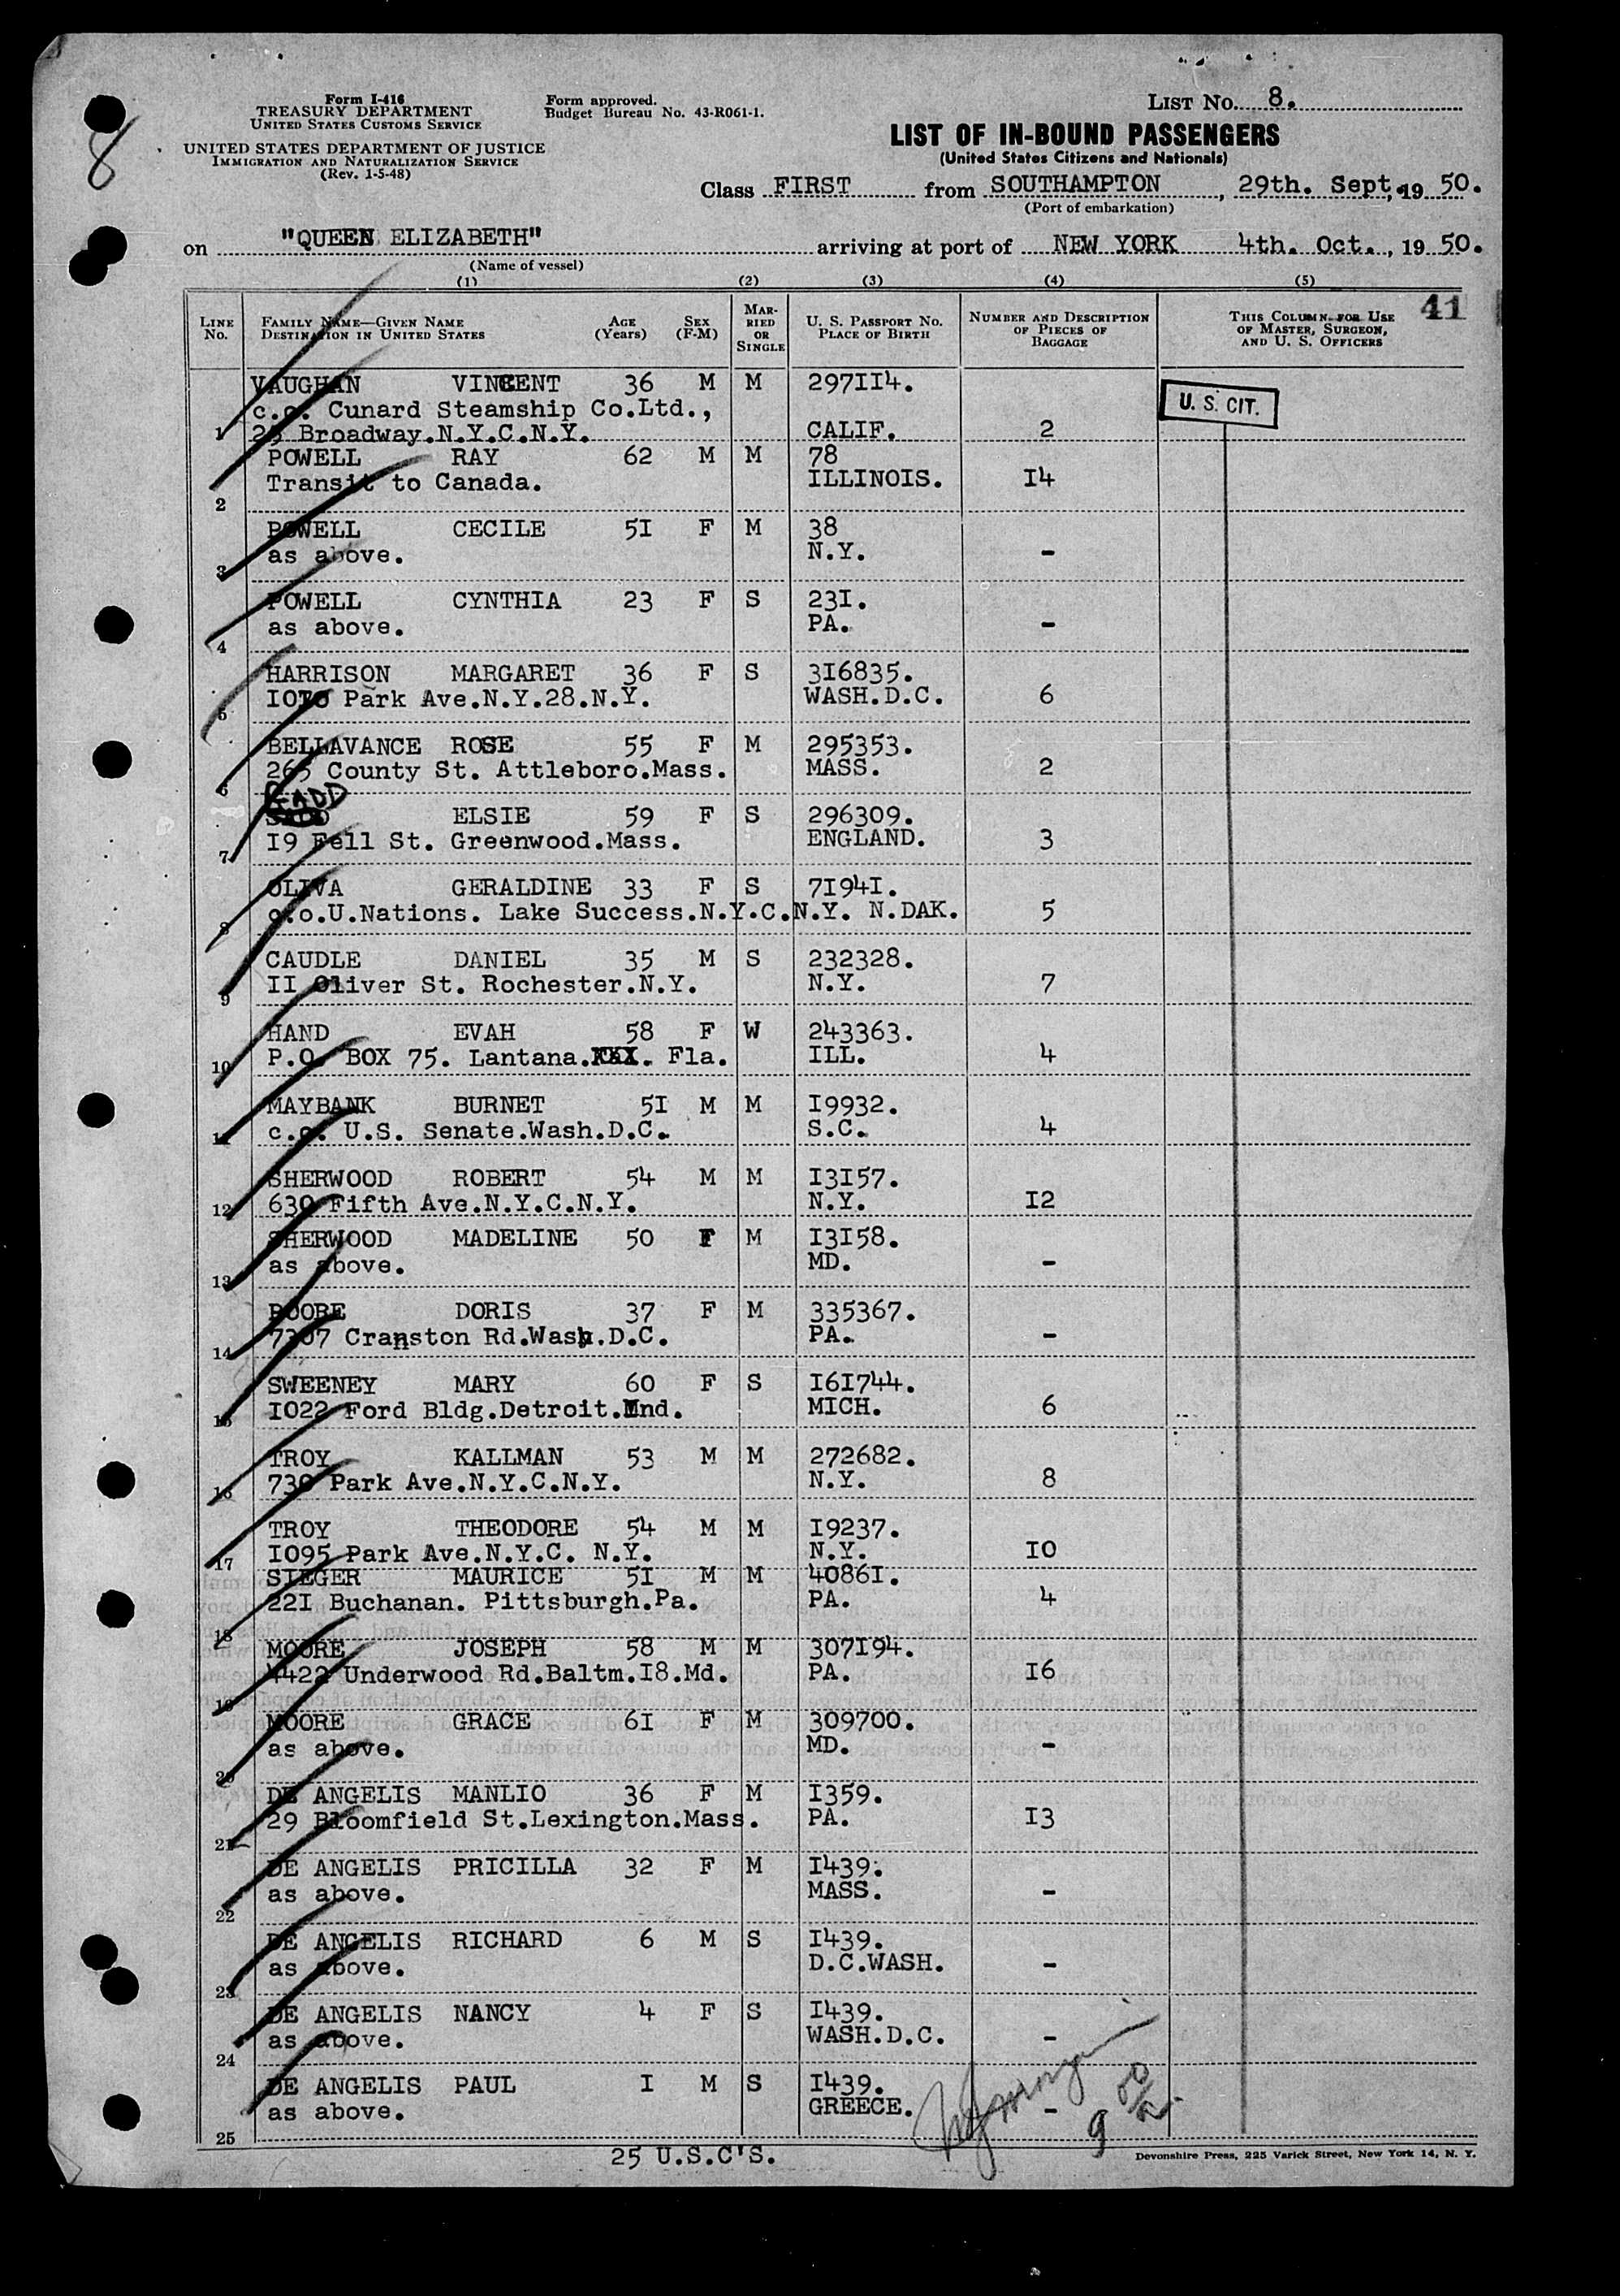 8
Form I-416
TREASURY DEPARTMENT
UNITED STATES CUSTOMS SERVICE
UNITED STATES DEPARTMENT OF JUSTICE
IMMIGRATION AND NATURALIZATION SERVICE
(Rev. 1-5-48)
Form approved.
Budget Bureau No. 43-R061-1.
LIST NO. 8.
LIST OF IN-BOUND PASSENGERS
(United States Citizens and Nationals)
Class FIRST from SOUTHAMPTON, 29th. Sept, 19 50.
(Port of embarkation)
on "QUEEN ELIZABETH" arriving at port of NEW YORK 4th. Oct., 19 50.
(Name of vessel)
(1) (2) (3) (4) (5)
41
LINE No. FAMILY NAME—GIVEN NAME DESTINATION IN UNITED STATES AGE (Years) SEX (F-M) MARRIED OR SINGLE U. S. PASSPORT NO. PLACE OF BIRTH NUMBER AND DESCRIPTION OF PIECES OF BAGGAGE THIS COLUMN FOR USE OF MASTER, SURGEON, AND U. S. OFFICERS
VAUGHAN VINCENT 36 M M 297II4.
U. S. CIT.
c.o. Cunard Steamship Co.Ltd.,
1 25 Broadway.N.Y.C.N.Y. CALIF. 2
POWELL RAY 62 M M 78
2 Transit to Canada. ILLINOIS. I4
POWELL CECILE 5I F M 38
3 as above. N.Y. -
POWELL CYNTHIA 23 F S 23I.
4 as above. PA. -
HARRISON MARGARET 36 F S 3I6835.
5 I0I0 Park Ave.N.Y.28.N.Y. WASH.D.C. 6
BELLAVANCE ROSE 55 F M 295353.
6 265 County St. Attleboro.Mass. MASS. 2
GADD
ELSIE 59 F S 296309.
7 I9 Fell St. Greenwood.Mass. ENGLAND. 3
OLIVA GERALDINE 33 F S 7I94I.
8 c.o.U.Nations. Lake Success.N.Y.C.N.Y. N.DAK. 5
CAUDLE DANIEL 35 M S 232328.
9 II Oliver St. Rochester.N.Y. N.Y. 7
HAND EVAH 58 F W 243363.
10 P.O. BOX 75. Lantana. Fla. ILL. 4
MAYBANK BURNET 5I M M I9932.
11 c.o. U.S. Senate.Wash.D.C. S.C. 4
SHERWOOD ROBERT 54 M M I3I57.
12 630 Fifth Ave.N.Y.C.N.Y. N.Y. I2
SHERWOOD MADELINE 50 F M I3I58.
13 as above. MD. -
POORE DORIS 37 F M 335367.
14 7307 Cranston Rd.Wash.D.C. PA. -
SWEENEY MARY 60 F S I6I744.
15 I022 Ford Bldg.Detroit.Mnd. MICH. 6
TROY KALLMAN 53 M M 272682.
16 730 Park Ave.N.Y.C.N.Y. N.Y. 8
TROY THEODORE 54 M M I9237.
17 I095 Park Ave.N.Y.C. N.Y. N.Y. I0
SIEGER MAURICE 5I M M 4086I.
18 22I Buchanan. Pittsburgh.Pa. PA. 4
MOORE JOSEPH 58 M M 307I94.
19 4422 Underwood Rd.Baltm.I8.Md. PA. I6
MOORE GRACE 6I F M 309700.
20 as above. MD. -
DE ANGELIS MANLIO 36 F M I359.
21 29 Bloomfield St.Lexington.Mass. PA. I3
DE ANGELIS PRICILLA 32 F M I439.
22 as above. MASS. -
DE ANGELIS RICHARD 6 M S I439.
23 as above. D.C.WASH. -
DE ANGELIS NANCY 4 F S I439.
24 as above. WASH.D.C. -
DE ANGELIS PAUL I M S I439.
25 as above. GREECE. -
25 U.S.C'S.
Devonshire Press, 225 Varick Street, New York 14, N. Y.